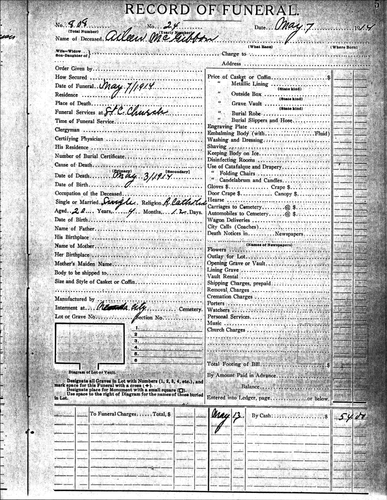 RECORD OF FUNERAL.
No. 809 No. 24 Date May 7 1914
(Total Number) (Yearly Number)
Name of Deceased Aileen McGibbon
(What Born) (Where Born)
Charge to
Address
Order Given by
How Secured
Date of Funeral May 7/1914
Residence
Place of Death
Funeral Services at St C. Church
Time of Funeral Service
Clergyman
Certifying Physician
His Residence
Number of Burial Certificate
Cause of Death
(Primary) (Secondary)
Date of Death May 3/1914
Date of Birth
Occupation of the Deceased
Single or Married Single Religion R Catholic
Aged 20 Years, 4 Months, Days
Date of Birth
Name of Father
His Birthplace
Name of Mother
Her Birthplace
Mother's Maiden Name
Body to be shipped to
Size and Style of Casket or Coffin
Manufactured by
Interment at Cemetery
Lot or Grave No. Section No.
1
2
3
4
5
Diagram of Lot or Vault.
Designate all Graves in Lot with Numbers (1, 2, 3, 4, etc.), and
mark space for this Funeral with a cross (+)
Designate place for Monument with a small square (□)
Use space to the right of Diagram for the names of those buried
in Lot.
Price of Casket or Coffin $
" Metallic Lining
(State kind)
" Outside Box
(State kind)
" Grave Vault
(State kind)
" Burial Robe
" Burial Slippers and Hose
Engraving Plate
Embalming Body (with Fluid)
Washing and Dressing
Shaving
Keeping Body on Ice
Disinfecting Rooms
Use of Catafalque and Drapery
" Folding Chairs
" Candelabrum and Candles
Gloves $ Crape $
Door Crape $ Canopy $
Hearse
Carriages to Cemetery @ $
Automobiles to Cemetery @ $
Wagon Deliveries
City Calls (Coaches)
Death Notices in Newspapers
(Names of Newspapers)
Flowers
Outlay for Lot
Opening Grave or Vault
Lining Grave
Vault Rental
Shipping Charges, prepaid
Removal Charges
Cremation Charges
Porters
Watchers
Personal Services
Music
Church Charges
Total Footing of Bill $
By Amount Paid in Advance
Balance
Entered into Ledger, page or below.
To Funeral Charges Total, $
May 12 By Cash $